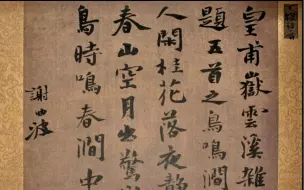 皇甫嶽雲溪雜
題五首之鳥鳴澗
人閑桂花落夜靜
春山空月出驚山
鳥時鳴春澗中